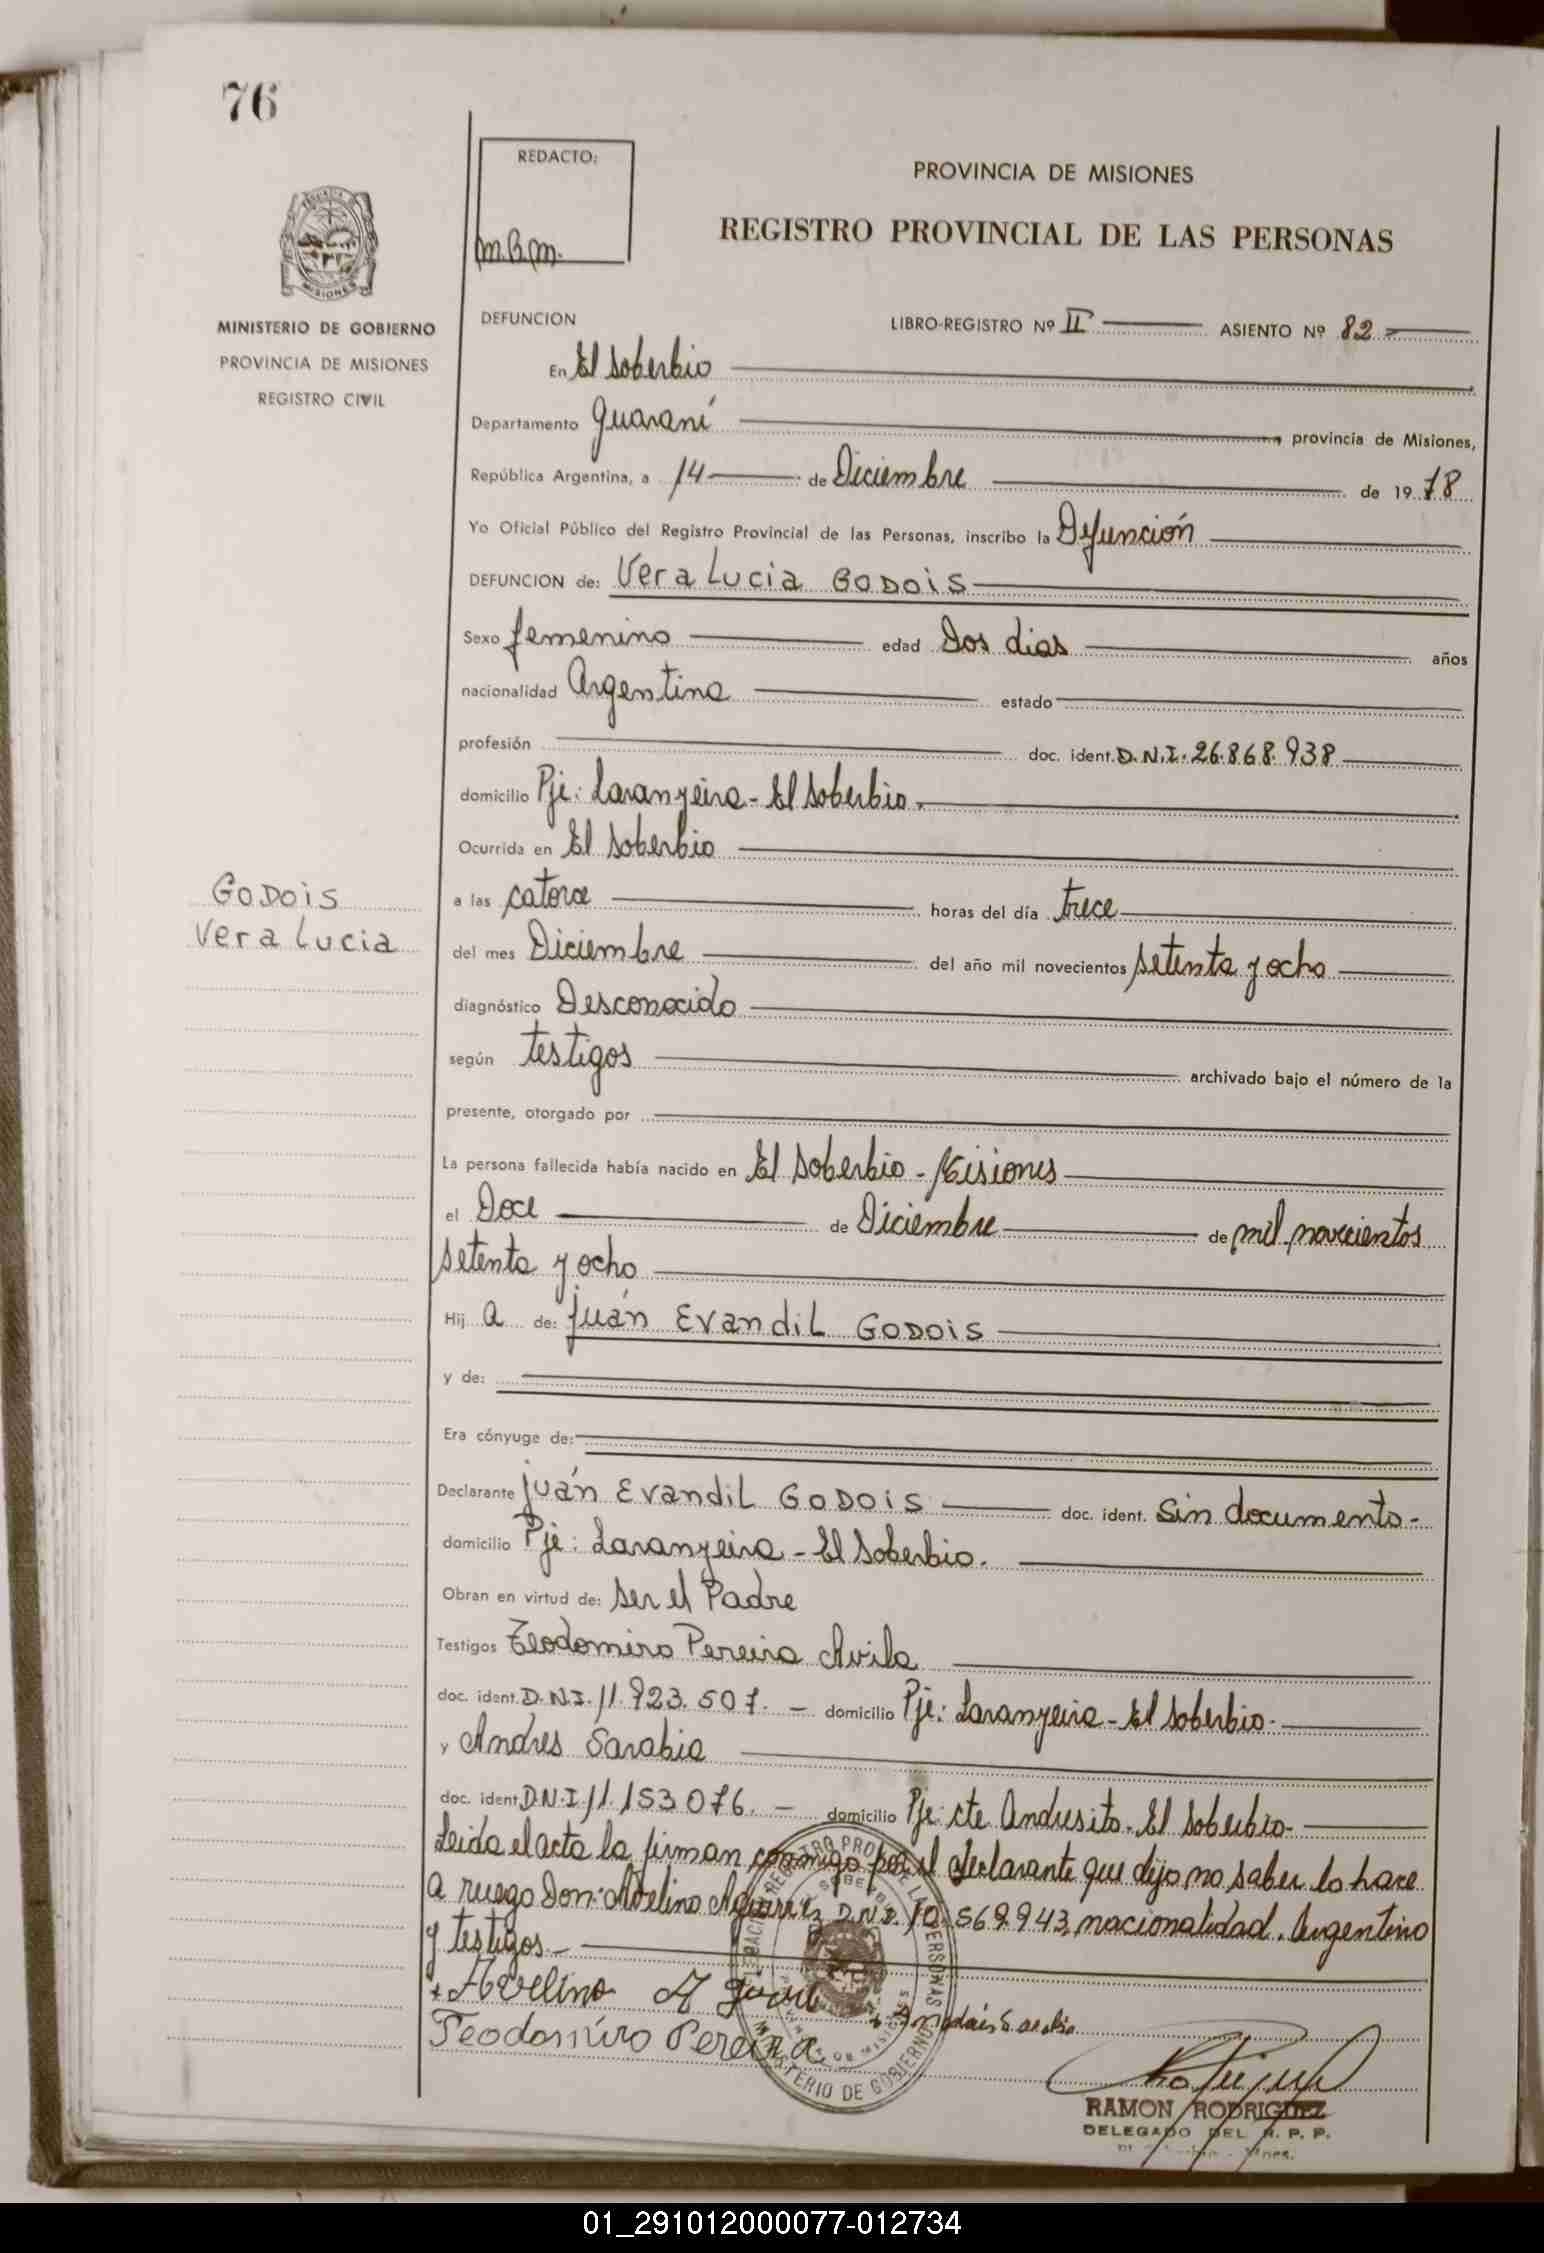 76
REDACTO:
m.B.m.
PROVINCIA DE MISIONES
REGISTRO PROVINCIAL DE LAS PERSONAS
MISIONES
MINISTERIO DE GOBIERNO
PROVINCIA DE MISIONES
REGISTRO CIVIL
DEFUNCION
LIBRO-REGISTRO Nº II ASIENTO Nº 82
En El Soberbio
Departamento Guaraní provincia de Misiones,
República Argentina, a 14 de Diciembre de 1978
Yo Oficial Público del Registro Provincial de las Personas, inscribo la Defunción
DEFUNCION de: Vera Lucia GODOIS
Sexo femenino edad Dos dias años
nacionalidad Argentina estado
profesión doc. ident. D.N.I. 26.868.938
domicilio Pje: Laranyeira - El Soberbio.
Ocurrida en El Soberbio
GODOIS
Vera Lucia
a las catorce horas del día trece
del mes Diciembre del año mil novecientos setenta y ocho
diagnóstico Desconocido
según testigos archivado bajo el número de la
presente, otorgado por
La persona fallecida había nacido en El Soberbio - Misiones
el Doce de Diciembre de mil novecientos
setenta y ocho
Hij a de: Juán Evandil GODOIS
y de:
Era cónyuge de:
Declarante Juán Evandil GODOIS doc. ident. Sin documento-
domicilio Pje: Laranyeira - El Soberbio.
Obran en virtud de: Ser el Padre
Testigos Teodomiro Pereira Avila
doc. ident. D.N.I. 11.923.507. - domicilio Pje: Laranyeira - El Soberbio.
y Andres Sarabia
doc. ident. D.N.I. 11.153.076. - domicilio Pje: cte Andresito. El Soberbio-
Leida el acta la firman conmigo por el declarante que dijo no saber lo hace
a ruego Don: Avelino Aguirrez D.N.I. 10.569.943, nacionalidad. Argentino
y testigos.-
Avelino A
Teodomiro Pereira
REGISTRO PROV. DE LAS PERSONAS
MINISTERIO DE GOBIERNO
RAMON RODRIGUEZ
DELEGADO DEL R. P. P.
01_291012000077-012734